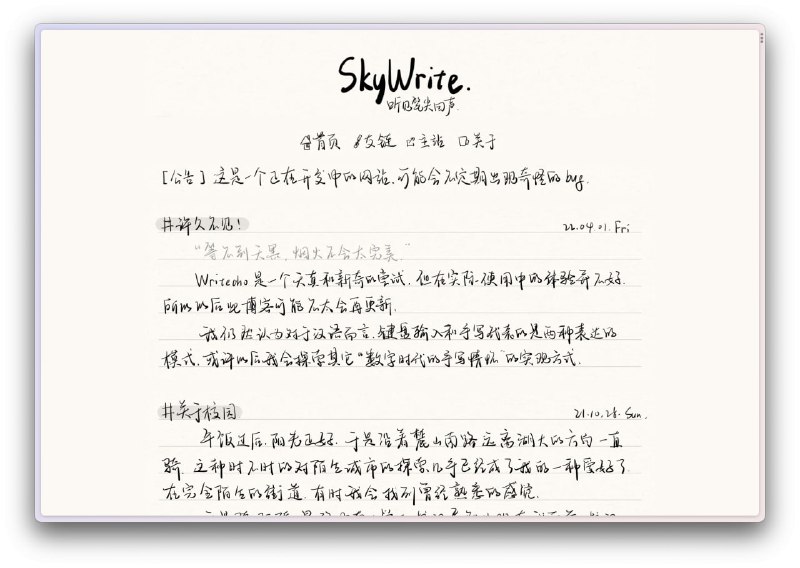 SkyWrite.
听见笔尖回声.
首页 友链 主站 关于
[公告] 这是一个正在开发中的网站,可能会不定期出现奇怪的bug.
#许久不见! 22.04.01. Fri
“等不到天黑,烟火不会太完美”
Writecho 是一个天真和新奇的尝试,但在实际使用中的体验并不好.
所以以后此博客可能不太会再更新.
我仍然认为对于汉语而言,键盘输入和手写代表的是两种表达的
模式,或许以后我会探索其它“数字时代的手写情怀”的实现方式.
#关于校园 21.10.28. Sun.
午饭过后,阳光正好.于是沿着麓山南路远离湖大的方向一直
骑.这种时不时的对陌生城市的探索几乎已经成了我的一种爱好了
在完全陌生的街道,有时我会找到曾经熟悉的感觉.